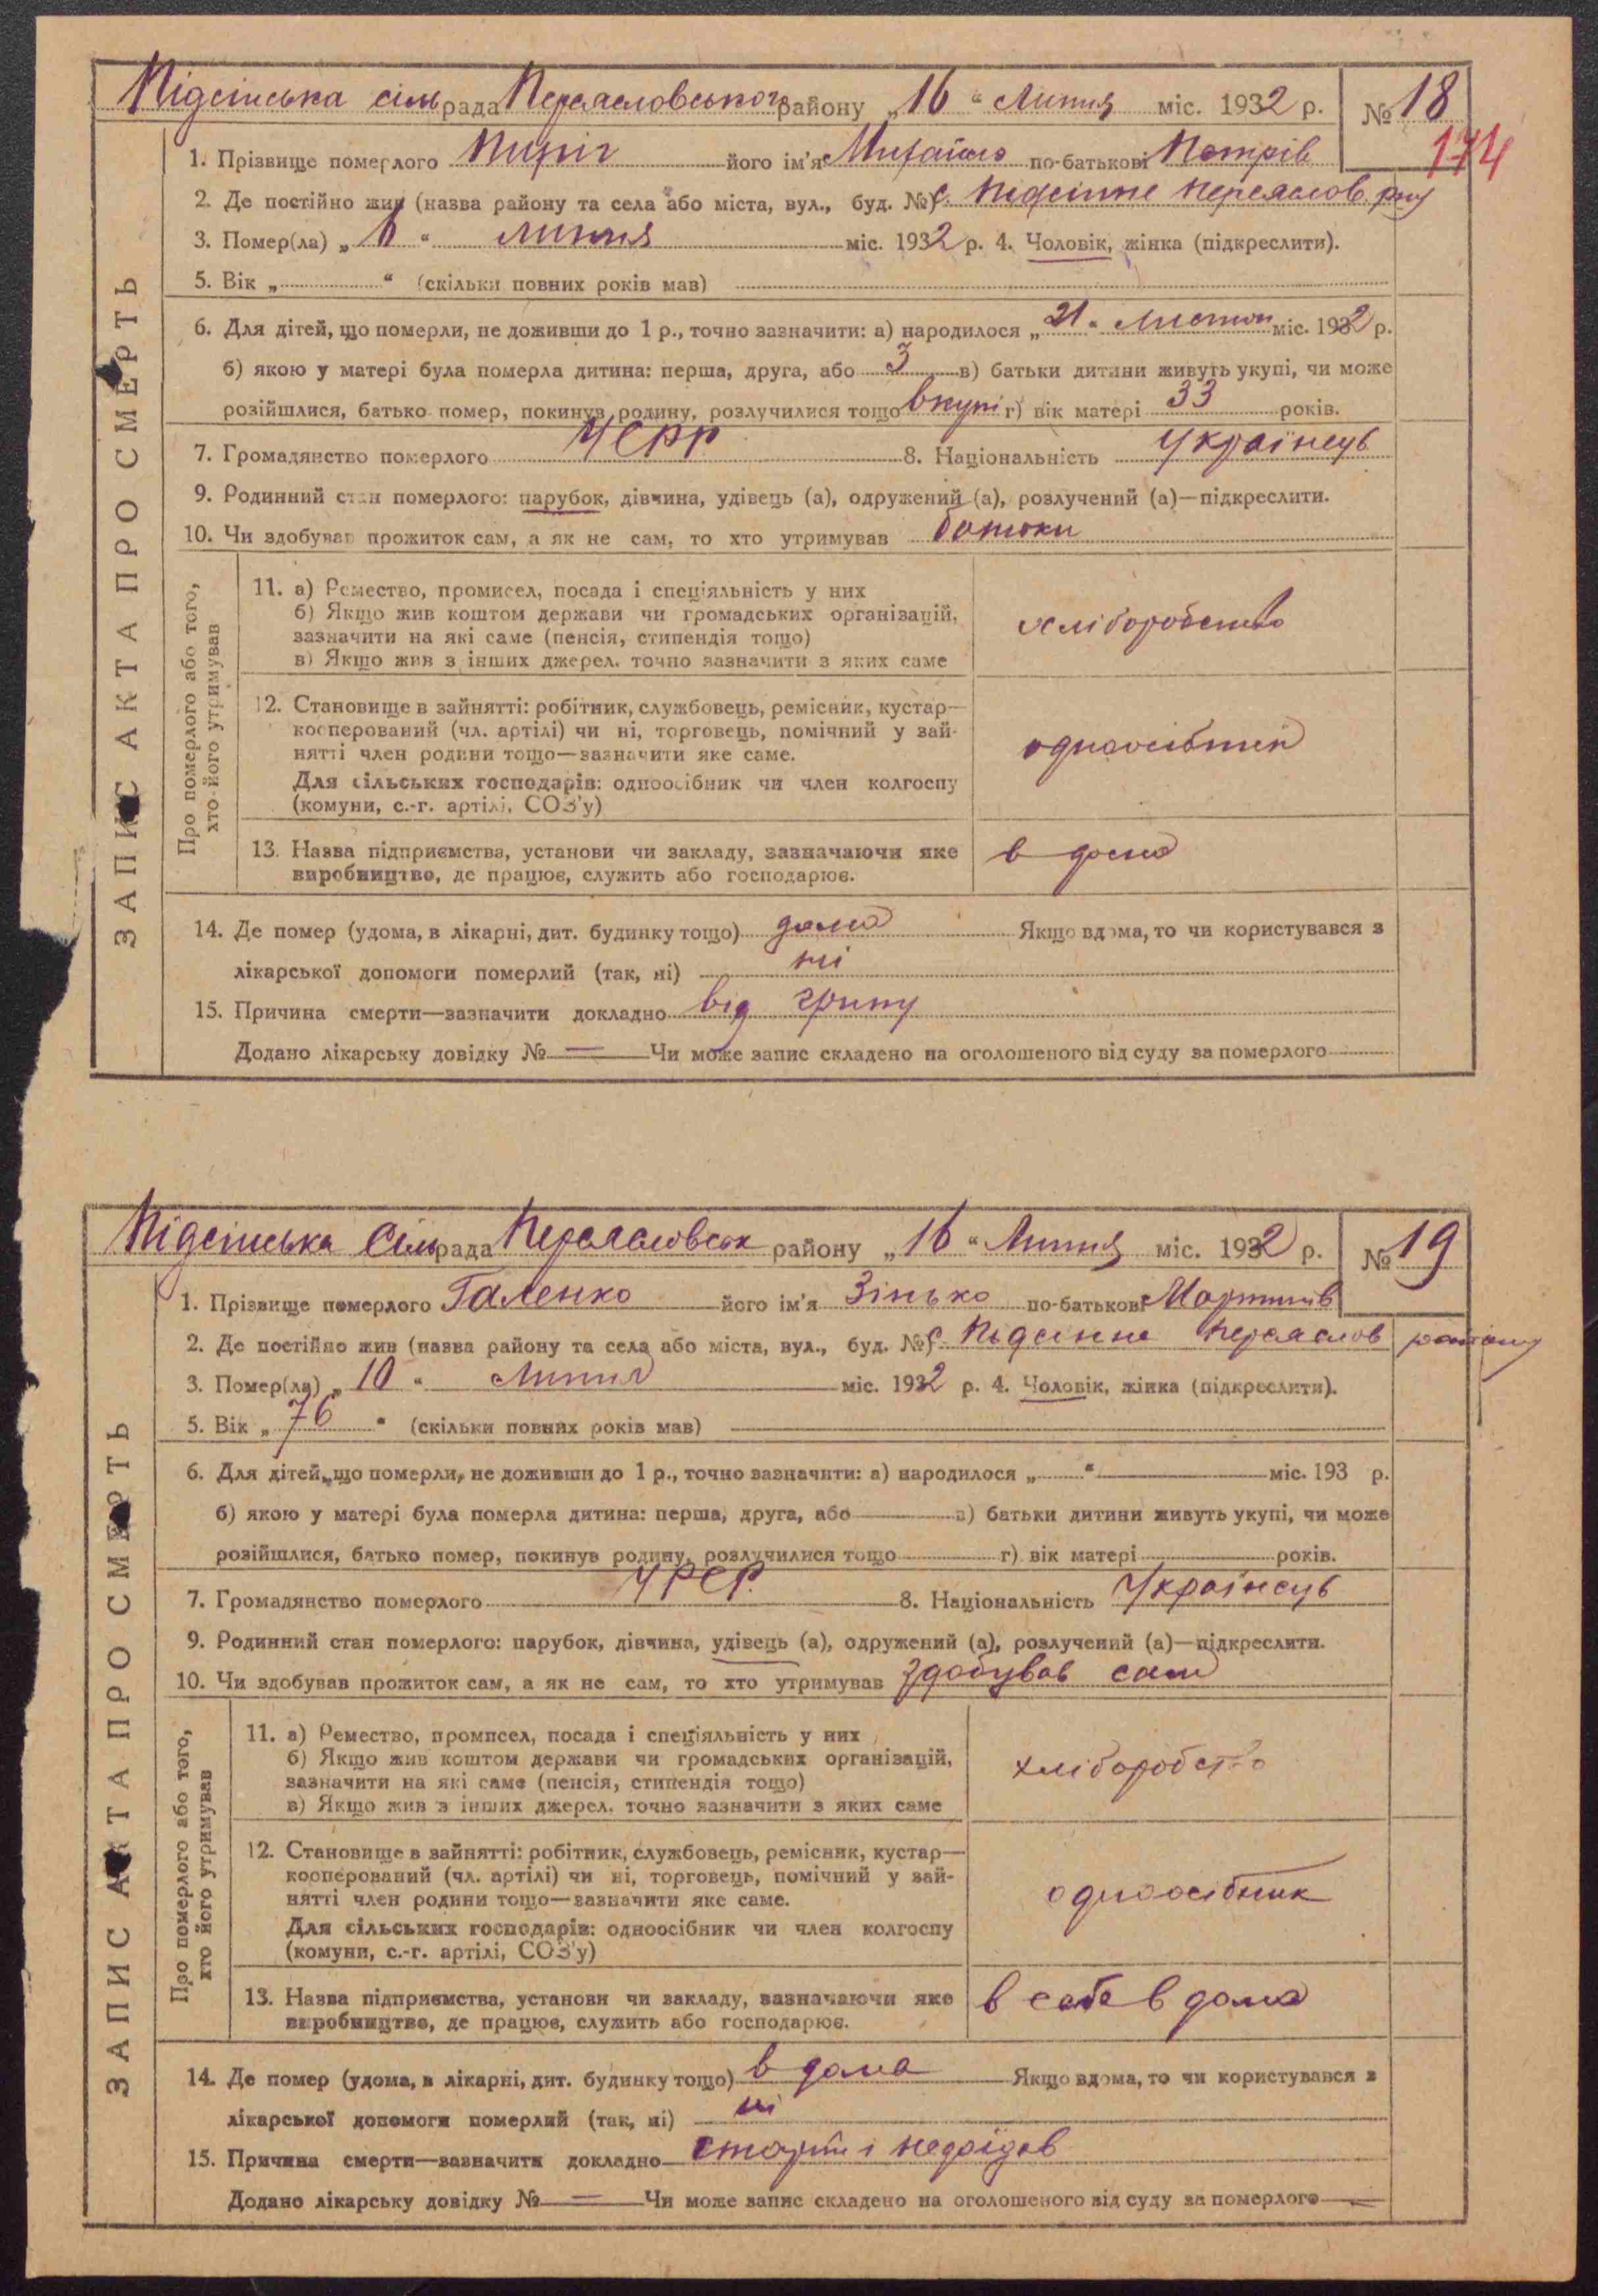 Підсінська сільрада Переяславського району „16“ Липня міс. 1932 р. № 18
174
1. Прізвище померлого Пиріг його ім'я Михайло по-батькові Петрів
2. Де постійно жив (назва району та села або міста, вул., буд. №) с. Підсінне Переяслов. рну
3. Помер(ла) „6“ липня міс. 1932 р. 4. Чоловік, жінка (підкреслити).
5. Вік „ “ (скільки повних років мав)
6. Для дітей, що померли, не доживши до 1 р., точно зазначити: а) народилося „21“ Листоп міс. 1932 р.
б) якою у матері була померла дитина: перша, друга, або 3 в) батьки дитини живуть укупі, чи може
розійшлися, батько помер, покинув родину, розлучилися тощо вкупі г) вік матері 33 років.
7. Громадянство померлого УСРР 8. Національність Українець
9. Родинний стан померлого: парубок, дівчина, удівець (а), одружений (а), розлучений (а)—підкреслити.
10. Чи здобував прожиток сам, а як не сам, то хто утримував батьки
ЗАПИС АКТА ПРО СМЕРТЬ
Про померлого або того,
хто його утримував
11. а) Ремество, промисел, посада і спеціяльність у них
б) Якщо жив коштом держави чи громадських організацій,
зазначити на які саме (пенсія, стипендія тощо)
в) Якщо жив з інших джерел, точно зазначити з яких саме
хліборобство
12. Становище в зайнятті: робітник, службовець, ремісник, кустар—
кооперований (чл. артілі) чи ні, торговець, помічний у зай-
нятті член родини тощо—зазначити яке саме.
Для сільських господарів: одноосібник чи член колгоспу
(комуни, с.-г. артілі, СОЗ'у)
одноосібник
13. Назва підприємства, установи чи закладу, зазначаючи яке
виробництво, де працює, служить або господарює.
в дома
14. Де помер (удома, в лікарні, дит. будинку тощо) дома Якщо вдома, то чи користувався з
лікарської допомоги померлий (так, ні) ні
15. Причина смерти—зазначити докладно від грипу
Додано лікарську довідку № — Чи може запис складено на оголошеного від суду за померлого
Підсінська сільрада Переясловськ району „16“ Липня міс. 1932 р. № 19
1. Прізвище померлого Галенко його ім'я Зінько по-батькові Мартинів
2. Де постійно жив (назва району та села або міста, вул., буд. №) с. Підсінне Переяслов району
3. Помер(ла) „10“ Липня міс. 1932 р. 4. Чоловік, жінка (підкреслити).
5. Вік „76“ (скільки повних років мав)
6. Для дітей, що померли, не доживши до 1 р., точно зазначити: а) народилося „ “ міс. 193 р.
б) якою у матері була померла дитина: перша, друга, або в) батьки дитини живуть укупі, чи може
розійшлися, батько помер, покинув родину, розлучилися тощо г) вік матері років.
7. Громадянство померлого УРСР. 8. Національність Українець
9. Родинний стан померлого: парубок, дівчина, удівець (а), одружений (а), розлучений (а)—підкреслити.
10. Чи здобував прожиток сам, а як не сам, то хто утримував здобував сам
ЗАПИС АКТА ПРО СМЕРТЬ
Про померлого або того,
хто його утримував
11. а) Ремество, промисел, посада і спеціяльність у них
б) Якщо жив коштом держави чи громадських організацій,
зазначити на які саме (пенсія, стипендія тощо)
в) Якщо жив з інших джерел, точно зазначити з яких саме
хліборобство
12. Становище в зайнятті: робітник, службовець, ремісник, кустар—
кооперований (чл. артілі) чи ні, торговець, помічний у зай-
нятті член родини тощо—зазначити яке саме.
Для сільських господарів: одноосібник чи член колгоспу
(комуни, с.-г. артілі, СОЗ'у)
одноосібник
13. Назва підприємства, установи чи закладу, зазначаючи яке
виробництво, де працює, служить або господарює.
в себе в дома
14. Де помер (удома, в лікарні, дит. будинку тощо) в дома Якщо вдома, то чи користувався з
лікарської допомоги померлий (так, ні) ні
15. Причина смерти—зазначити докладно старий і недоїдав
Додано лікарську довідку № — Чи може запис складено на оголошеного від суду за померлого —